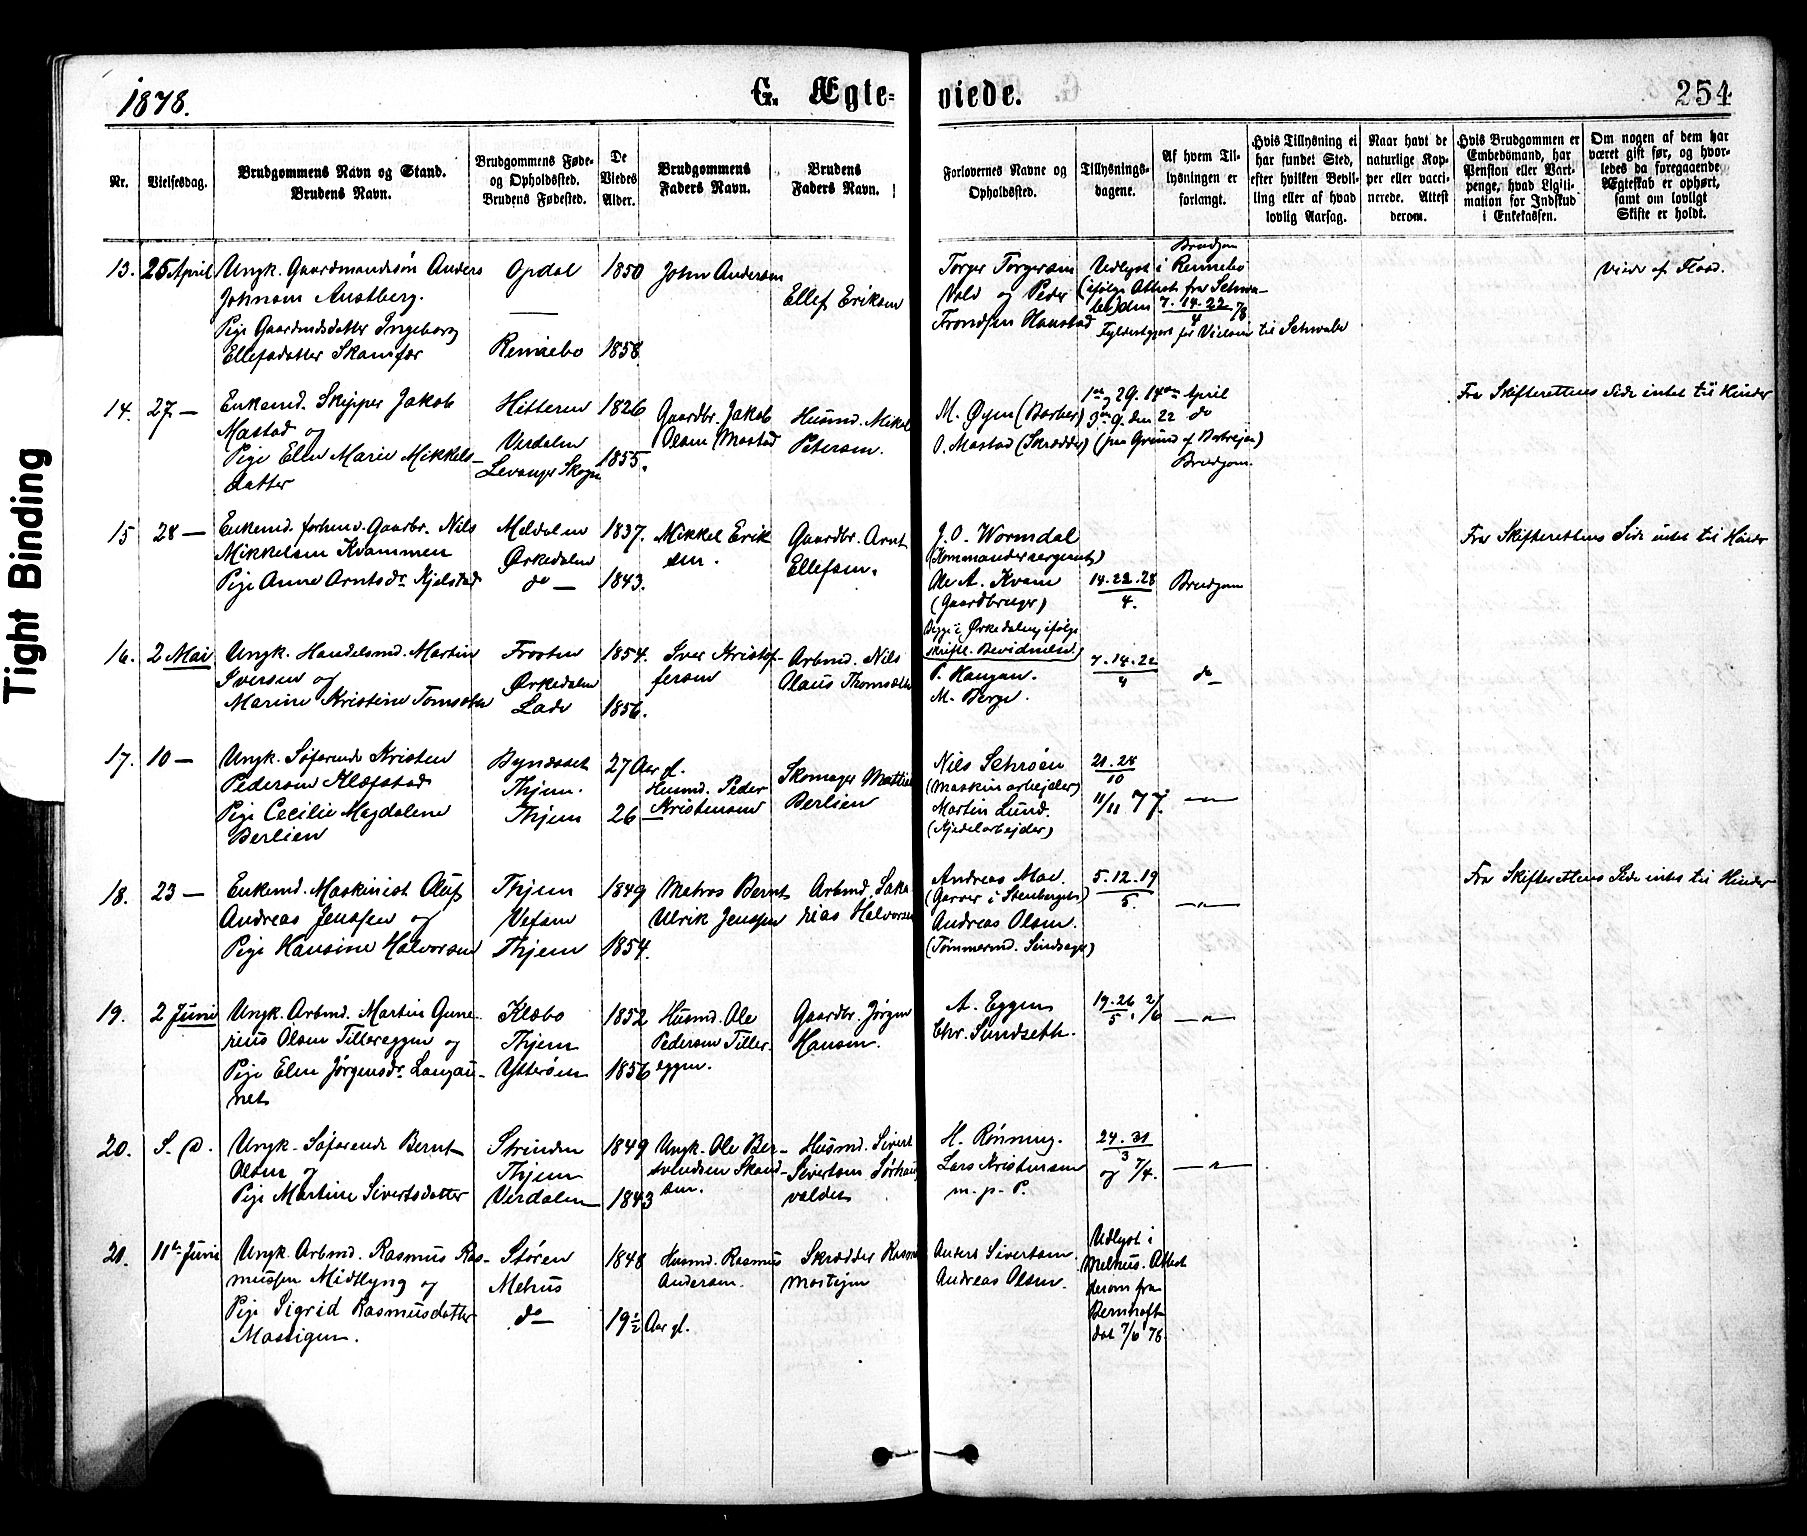 1878.
G. Ægte-
viede.
254
Nr.
Vielsesdag.
Brudgommens Navn og Stand.
Brudens Navn.
Brudgommens Føde-
og Opholdssted.
Brudens Fødested.
De
Viedes
Alder.
Brudgommens
Faders Navn.
Brudens
Faders Navn.
Forlovernes Navne og
Opholdssted.
Tillysnings-
dagene.
Af hvem Til-
lysningen er
forlangt.
Hvis Tillysning ei
har fundet Sted,
efter hvilken Bevil-
ling eller af hvad
lovlig Aarsag.
Naar havt de
naturlige Kop-
per eller vacci-
nerede. Attest
derom.
Hvis Brudgommen er
Embedsmand, har
Pension eller Vart-
penge, hvad Ligiti-
mation for Indskud
i Enkekassen.
Om nogen af dem har
været gift før, og hvor-
ledes da foregaaende
Ægteskab er ophørt,
samt om lovligt
Skifte er holdt.
13. 25 April
Ungk. Gaardmandssøn Anders
Johnsen Austberg.
Pige Gaardmdsdatter Ingeborg
Ellefsdatter Skamfer
Opdal
Rennebo
1850
1858.
John Andersen
Ellef Eriksen
Torger Torgersen
Vold og Peder
Trondsen Haustad
Udlyst i Rennebo
(ifølge Attest fra Schwa-
be) den 7. 14. 22/4 7/8
Brudgom
Viede af Flood.
14. 27 —
Enkemd. Skipper Jakob
Mastad og
Pige Ellen Marie Mikkels-
datter
Hitteren
Verdalen
Levanger Skogn
1826
1855.
Gaardbr. Jakob
Olsen Mastad
Husmd. Mikel
Petersen.
M. Øyen (Barber)
O. Mastad (Skrædder)
1ste 2g. 14de April
3die g. den 22 do
(paa Grund af Bortrejse)
Brudgom.
Fra Skifterettens Side intet til Hinder
15 28 —
Enkemd. forhenv. Gaardbr. Nils
Mikkelsen Kvammen
Pige Anne Arntsdr Kjelstad
Meldalen
Ørkedalen
do —
1837.
1843.
Mikkel Erik
sen.
Gaardbr. Arnt
Ellefsen.
J. O. Wormdal
(Kommandersergeant)
Ole A. Kvam
(Gaardbruger)
Begge i Ørkedalen, ifølge
skriftl. Bevidnelse)
14. 22. 28
4.
Brudgom
Fra Skifterettens Side intet til Hinder
16. 2 Mai
Ungk. Handelsmd. Martin
Iversen og
Marine Kristine Tomsetn
Frosten
Ørkedalen
Lade
1854.
1856.
Iver Kristof-
fersen
Arbmd. Nils
Olaus Thomsætn
P. Haugan.
M. Berge.
7. 14. 22
4
do
17. 10 —
Ungk. Søfarende Kristen
Pedersen Klefstad
Pige Cecilie Magdalene
Berlien
Bynesset
Thjem.
Thjem
27 Aar gl.
26 —
Husmd. Peder
Kristensen
Skomager Mattias
Berlien
Nils Schrøen
(Maskinarbejder)
Martin Lund.
(Kjedelarbejder)
21. 28
10
11/11 77.
—„—
18. 23 —
Enkemd. Maskinist Oluf
Andreas Jenssen og
Pige Hansine Halvorsen
Thjem
Vefsen
Thjem
1849
1854.
Matros Bernt
Ulrik Jenssen
Arbmd. Saka-
rias Halvorsen
Andreas Moe.
(Garver i Stenberget)
Andreas Olsen.
(Tømmermd. Sindsager)
5. 12. 19
5.
—„—
Fra Skifterettens Side intet til Hinder
19. 2 Juni
Ungk. Arbmd. Martin Gune-
rius Olsen Tillereggen og
Pige Elen Jørgensdr Langau-
net
Klæbo
Thjem
Ytterøen
1852
1856
Husmd. Ole
Pedersen Tiller-
eggen.
Gaardbr. Jørgen
Hansen.
A. Eggen
Chr. Sundseth.
19. 26. 2/6
5.
—„—
20. S. D.
Ungk. Søfarende Bernt
Olsen og
Pige Martine Sivertsdatter
Strinden
Thjem
Verdalen
1849
1843
Ungk. Ole Ber-
Husmd. Sivert
Sivertsen Sørhaug
valdet
H. Rønning.
Lars Kristensen
m. p. P.
24. 31
3
og 7/4.
—„—
21. 11te Juni
Ungk. Arbmd. Rasmus Ras-
mussen Midtlyng og
Pige Sigrid Rasmusdatter
Mostigen.
Støren
Mehus
do
1848
19½ Aar gl.
Husmd. Rasmus
Andersen.
Skrædder Rasmus
Mostigen
Anders Sivertsen.
Andreas Olsen.
Udlyst i
Melhus. Attest
derom fra
Bernhoft
dat 7/6 78.
Tight Binding